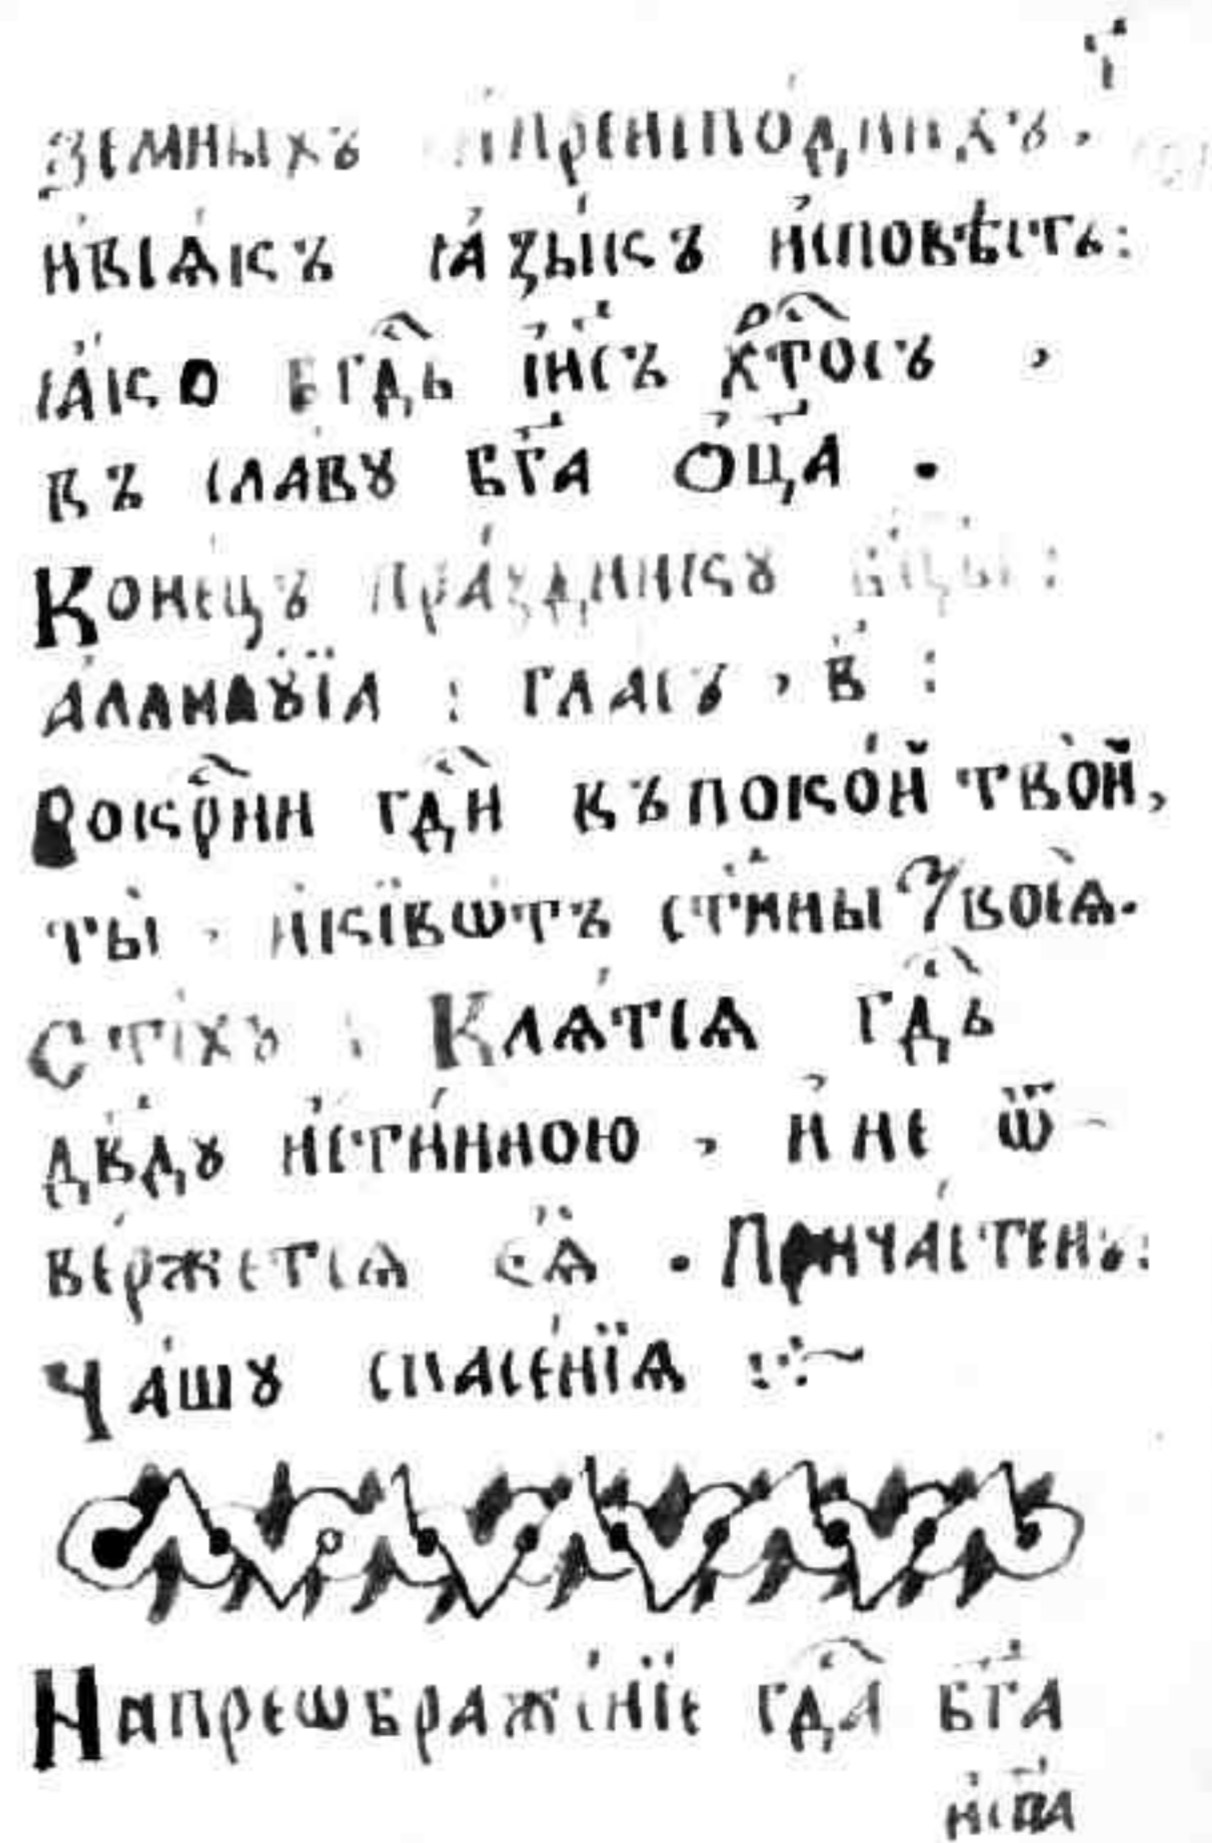 г҃
земны́хъ и҆преиспо́днихъ.
и҆всѧ́къ ꙗ҆зы́къ и҆сповѣ́сть:
ꙗ҆́кѡ бгⷭ҇дь і҆и҃съ хрⷭ҇то́съ ,
въ сла́вꙋ бг҃а ѻ҆ц҃а .
Коне́цъ пра́здникꙋ бц҃ы :
а҆лилꙋ́їа : гла́съ , в҃ :
Воскрⷭ҇ни гдⷭ҇и въпоко́й тво́й,
ты̀ , и҆кївѡ́тъ ст҃ы́ни Твоеѧ̀.
Сті́хъ : Клѧ́тсѧ гдⷭ҇ь
дв҃дꙋ и҆́стинною , и҆не ѿ-
ве́ржетсѧ є҆ѧ̀ . Прича́стенъ:
Ча́шꙋ спасе́нїѧ :·:~
Напреѡбраже́нїе гдⷭ҇а бг҃а
и҆сп҃а